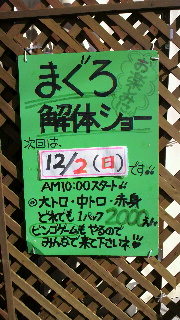 まぐろ
解体ショー
次回は、
12/2(日)
です!!
AM10:00スタート!!
◎大トロ・中トロ・赤身
どれでも1パック2000えん
ビンゴゲームもやるので
みんなで来て下さいネ!!